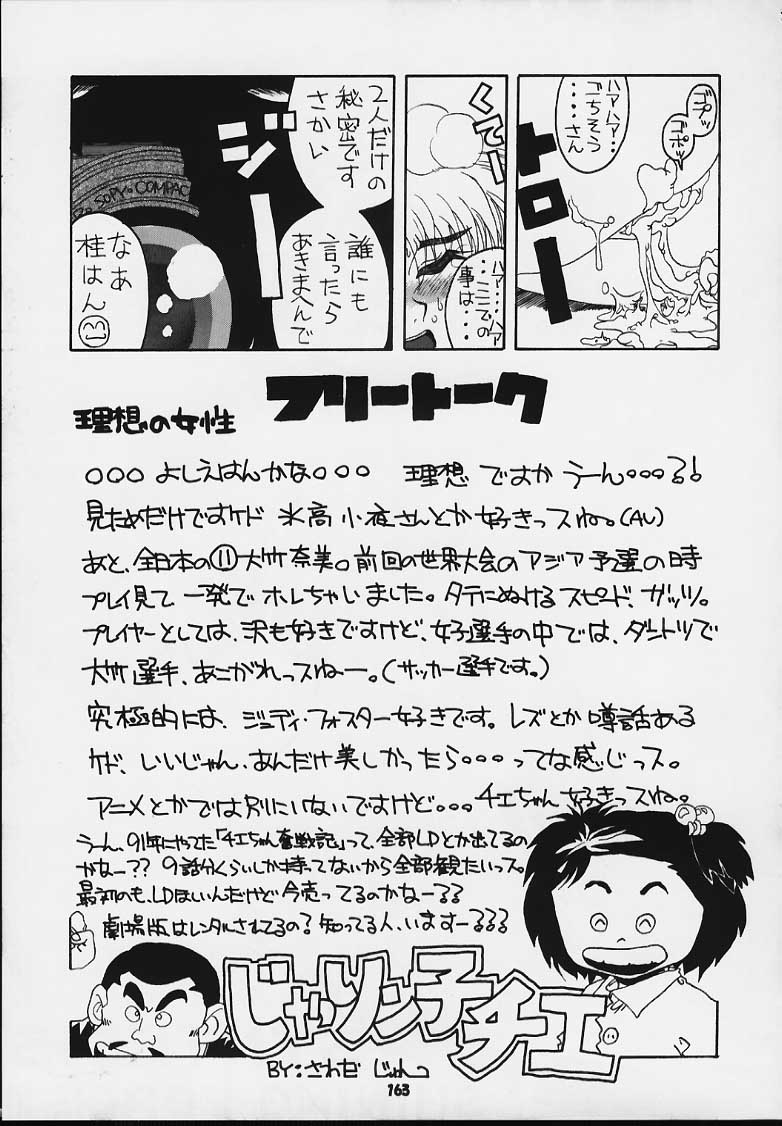 ゴプッ
ゴポッ
ハアハア…
ごちそう
・・・・さん
トロー
くてー
ハア…ハア
・・ここでの
事は・・・・
2人だけの
秘密です
さかい
誰にも
言ったら
あきまへんで
ジー
SOPY COMPAC
なあ
桂はん
フリートーク
理想の女性
○○○よしえはんかな○○○ 理想ですかうーん○○○る!
見ためだけですケド 氷高小夜さんとか好きっスね。(AV)
あと、全日本の⑪大竹奈美。前回の世界大会のアジア予選の時
プレイ見て一発でホレちゃいました。タテにぬけるスピード、ガッツ。
プレイヤーとしては、沢も好きですけど、女子選手の中では、ダントツで
大竹選手、あこがれっスねー。(サッカー選手です。)
究極的には、ジュディ・フォスター好きです。レズとか噂話ある
ケド、いいじゃん、あんだけ美しかったら○○○ってな感じっス。
アニメとかでは別にいないですけど○○○チエちゃん好きっスね。
うーん、91年にやってた「チエちゃん奮戦記」って、全部LDとか出てるの
かなー?? 9話分くらいしか持ってないから全部観たいっス。
最初のも、LDほしいんだけど今売ってるのかなーるる
劇場版はレンタルされてるの?知ってる人、いますーるるる
じゃリン子チエ
BY:さわだ じゅんこ
163